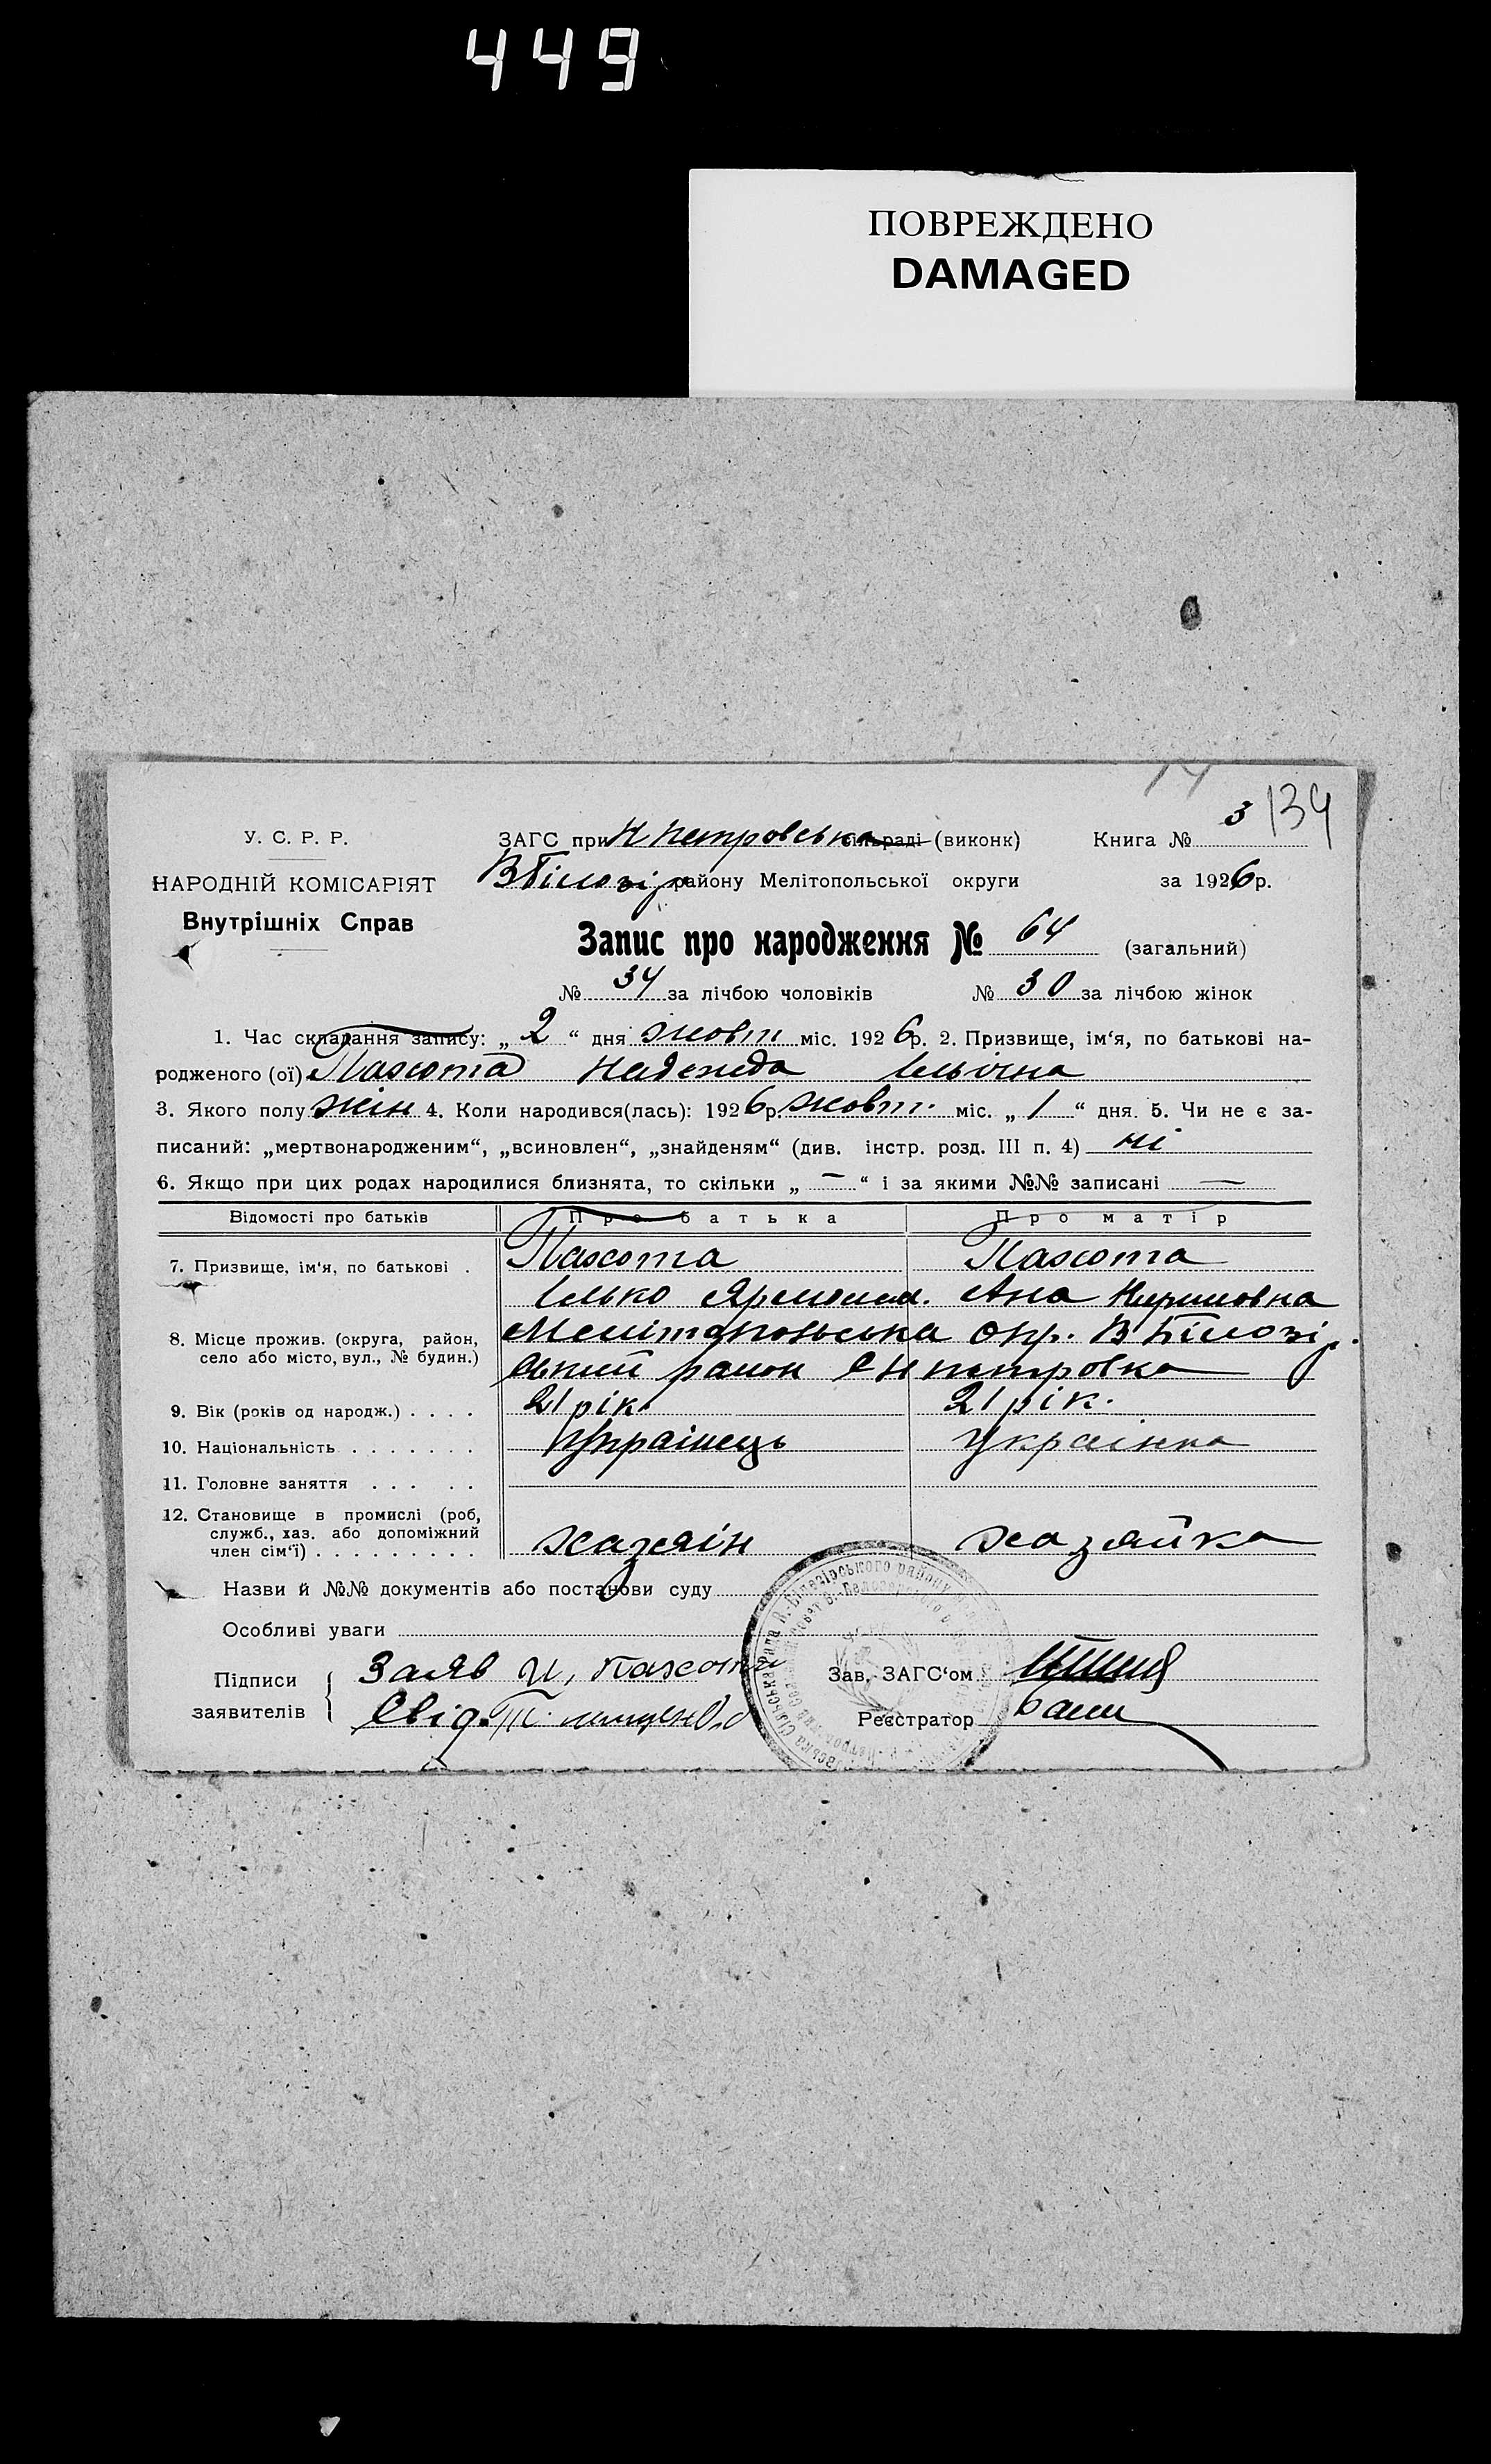 449
ПОВРЕЖДЕНО
DAMAGED
134
У. С. Р. Р.
ЗАГС при Н Петровська сільраді (виконк) Книга № 3
НАРОДНІЙ КОМІСАРІЯТ
В Білозір району Мелітопольської округи за 1926 р.
Внутрішніх Справ
Запис про народження № 64 (загальний)
№ 34 за лічбою чоловіків № 30 за лічбою жінок
1. Час складання запису: „ 2 “ дня жовт міс. 1926 р. 2. Призвище, ім‘я, по батькові на-
родженого (ої) Пахота Надежда Ільїчна
3. Якого полу жін 4. Коли народився(лась): 1926 р. жовт. міс. „ 1 “ дня. 5. Чи не є за-
писаний: „мертвонародженим“, „всиновлен“, „знайденям“ (див. інстр. розд. III п. 4) ні
6. Якщо при цих родах народилися близнята, то скільки „ — “ і за якими №№ записані —
Відомості про батьків Про батька Про матір
7. Призвище, ім‘я, по батькові . Пахота Пахота
Ілько Ана
8. Місце прожив. (округа, район, Мелітопольська окр. В Білозір.
село або місто, вул., № будин.) ський район с Н петровка
9. Вік (років од народж.) . . . . 21 рік. 21 рік.
10. Національність . . . . . . . Українець Українка
11. Головне заняття . . . . .
12. Становище в промислі (роб,
служб., хаз. або допоміжний
член сім‘ї) . . . . . . . . . хазяін хазяйка
Назви й №№ документів або постанови суду
Особливі уваги
Підписи Заяв И, Пахота Зав. ЗАГС‘ом
заявителів Свід. Реєстратор